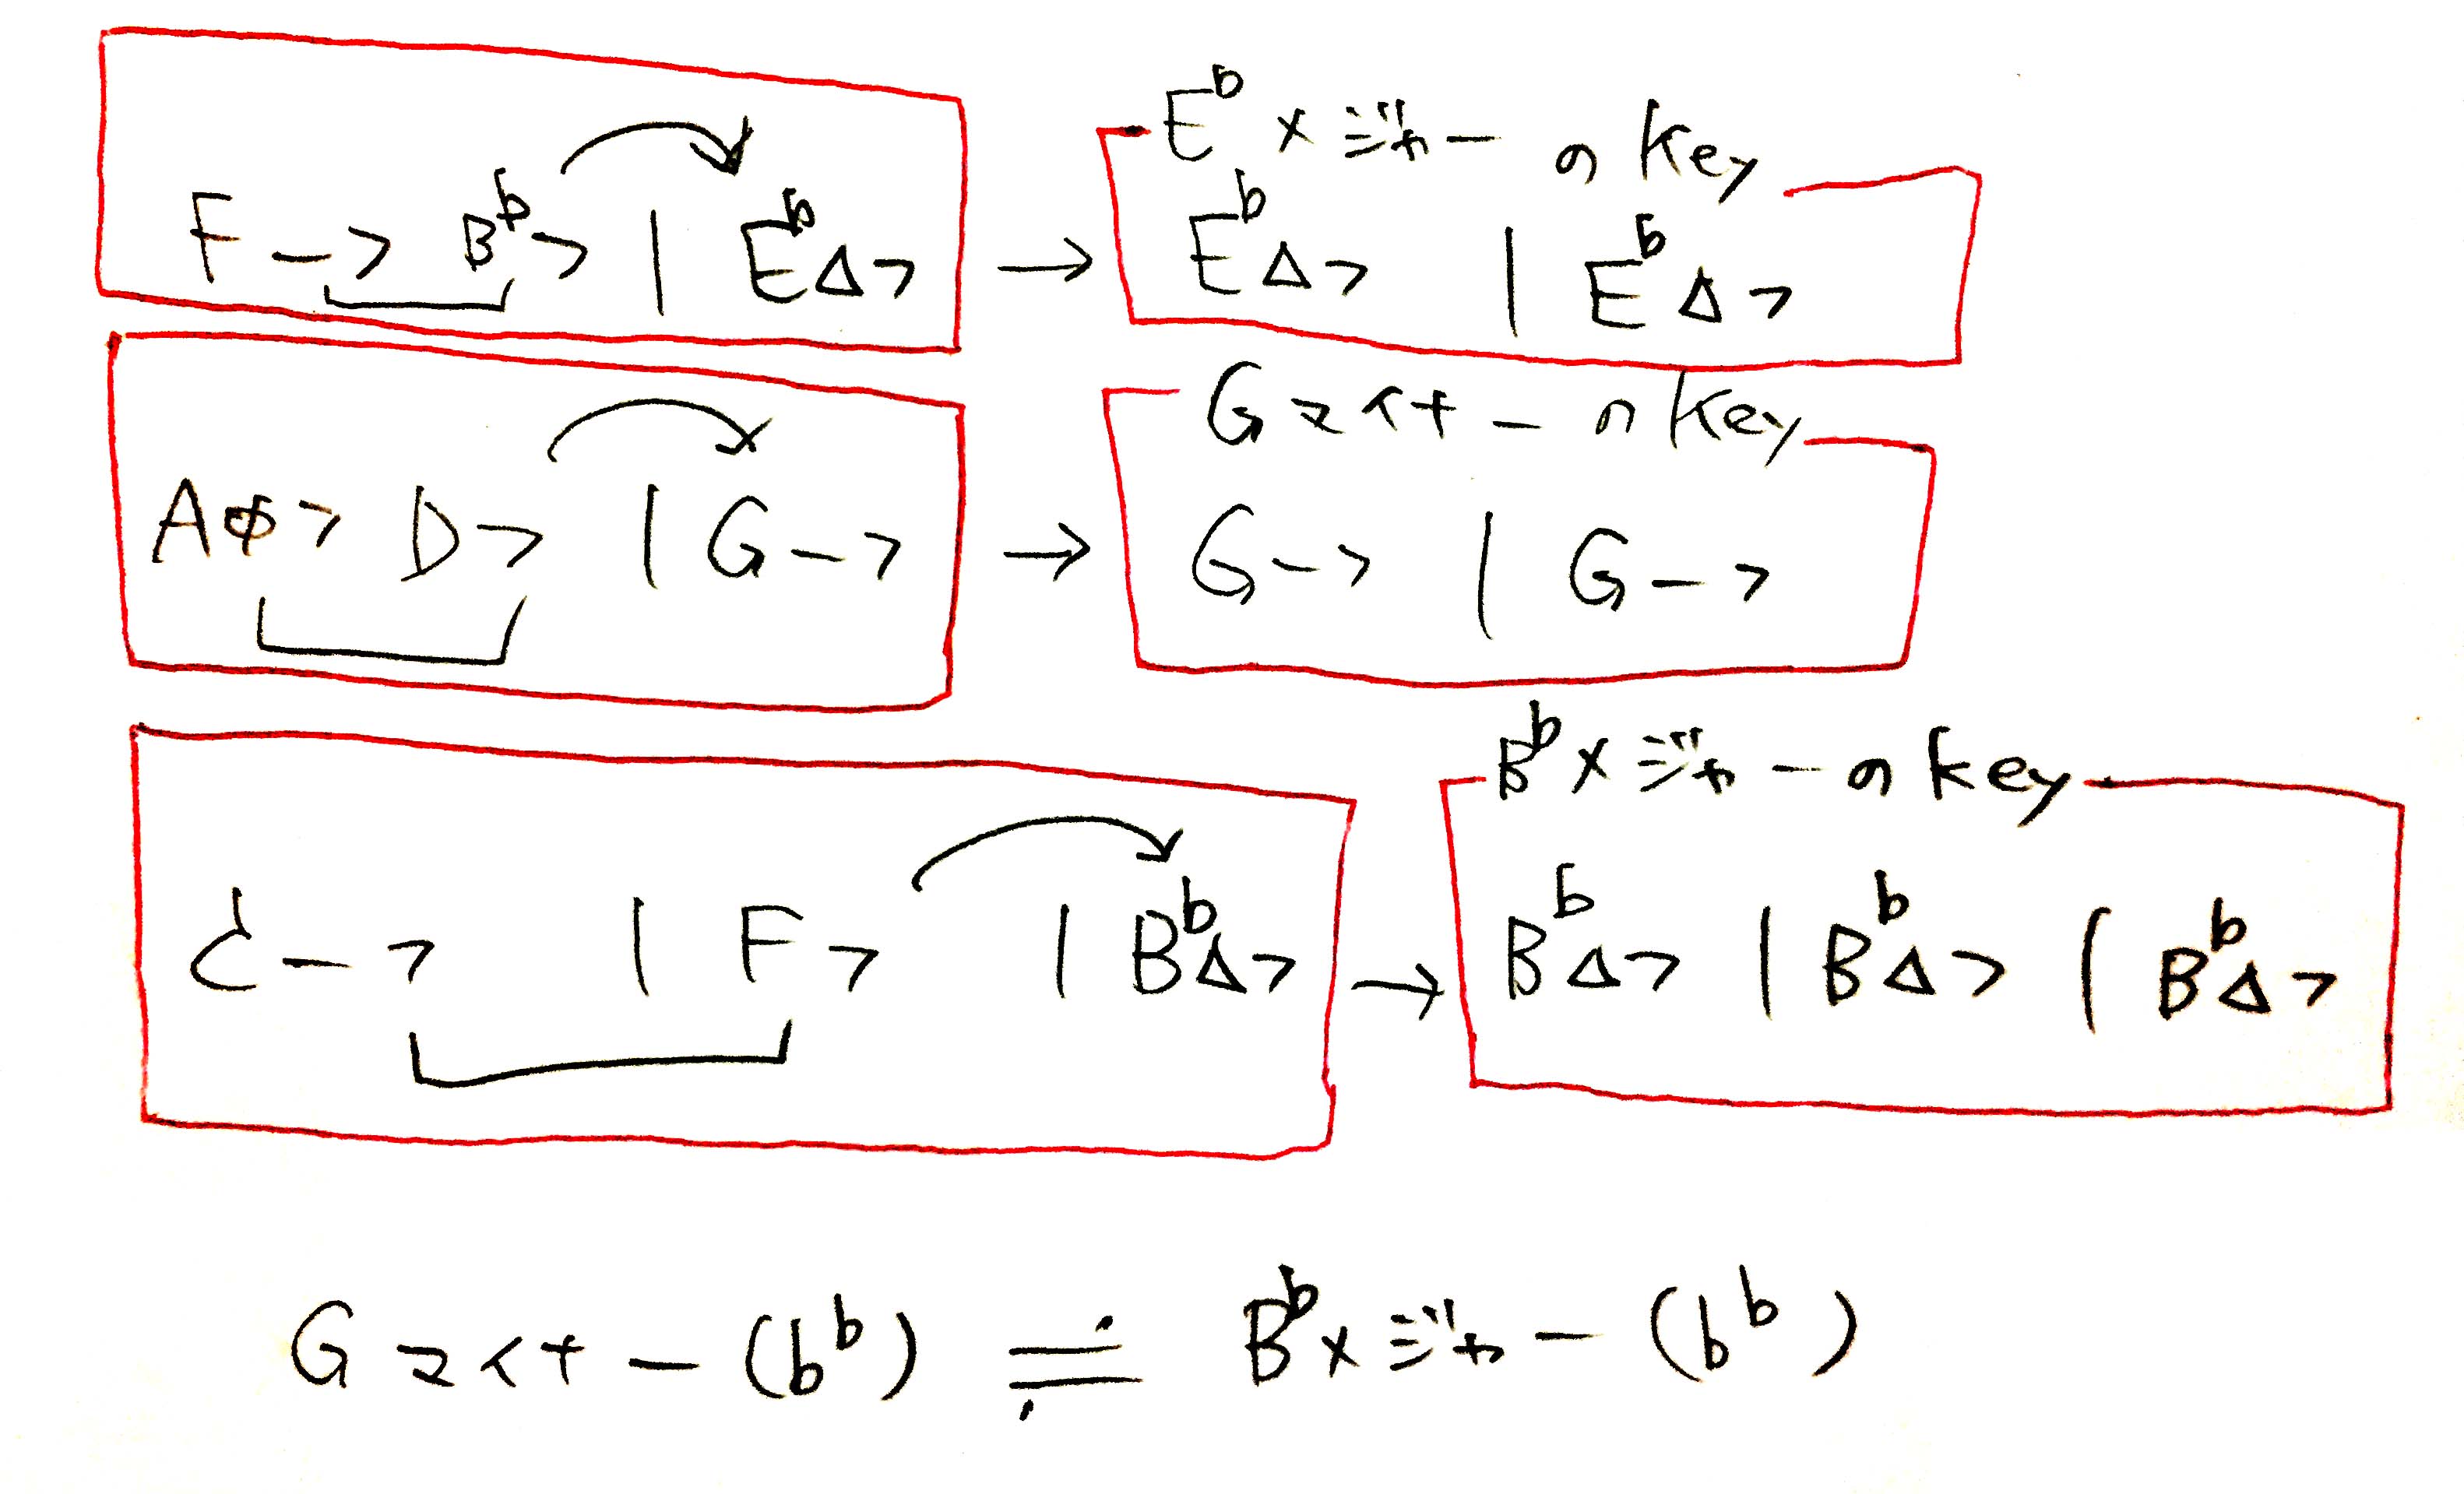 E♭メジャーのkey
F-7 B♭7 | E♭△7 → E♭△7 | E♭△7
Gマイナーのkey
Aφ7 D7 | G-7 → G-7 | G-7
B♭メジャーのkey
C-7 | F7 | B♭△7 → B♭△7 | B♭△7 | B♭△7
Gマイナー(b♭) ≒ B♭メジャー(b♭)